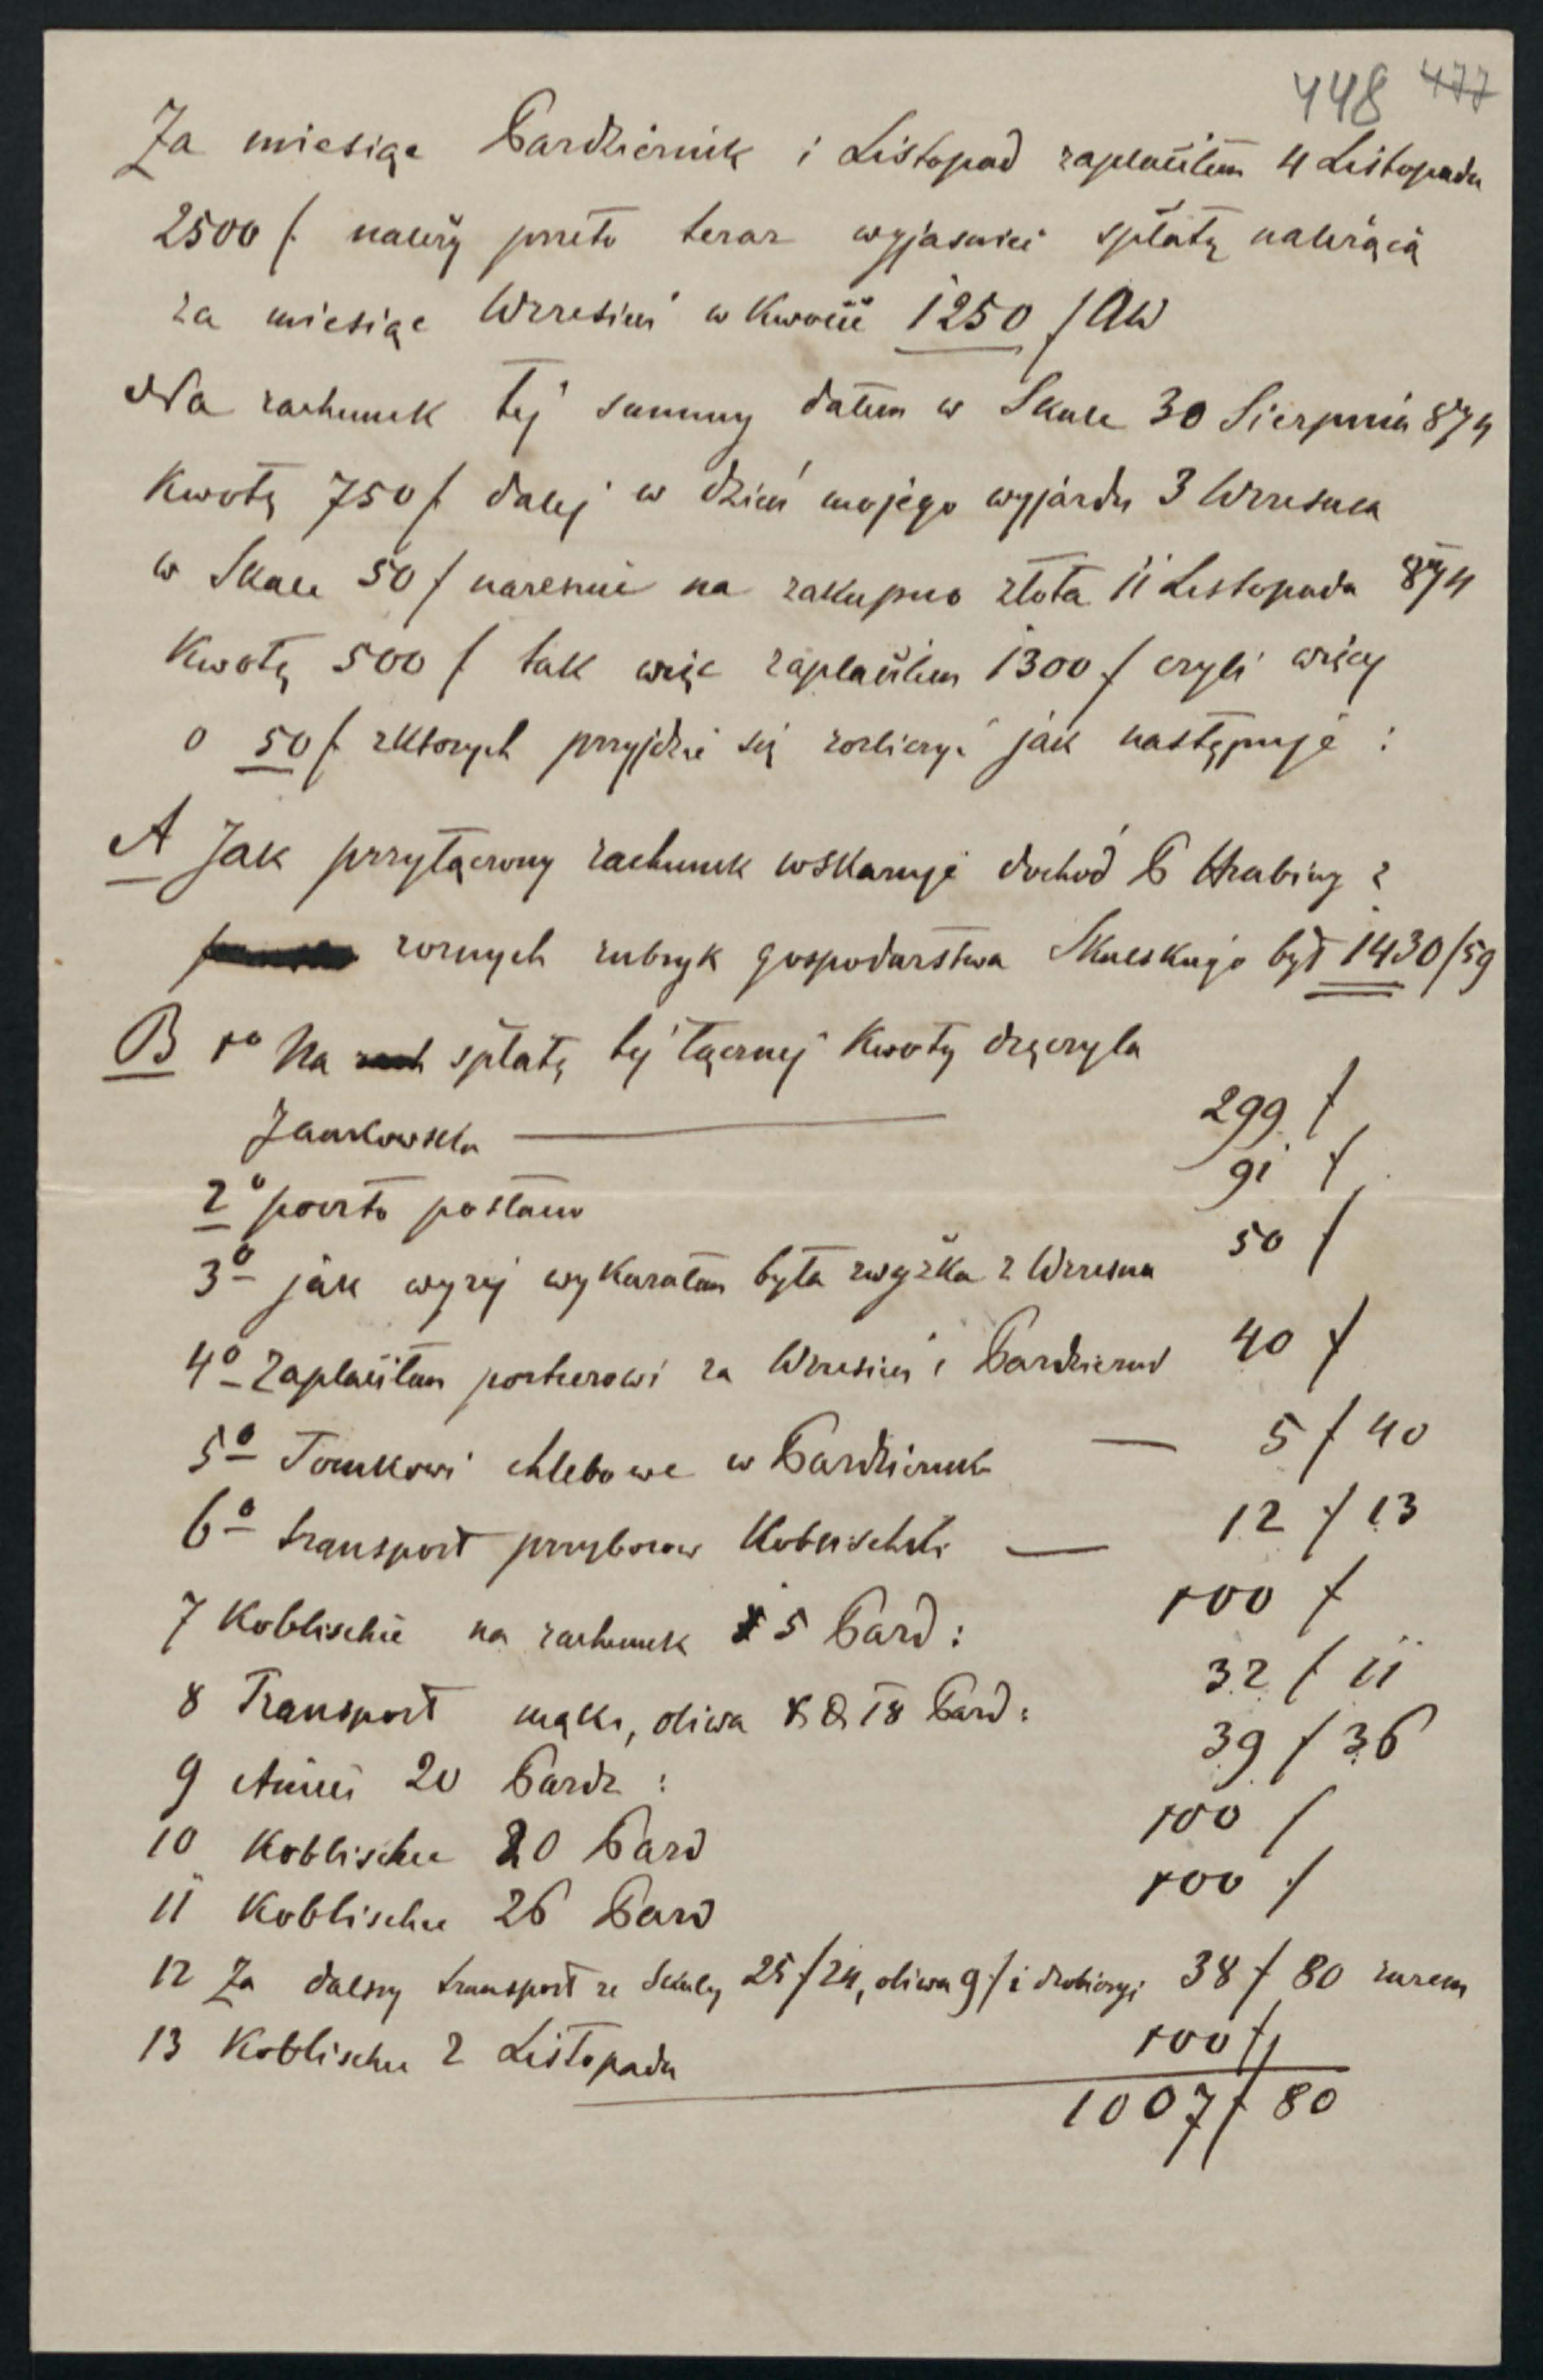 448 477
Za miesiąc Październik i Listopad zapłaciłem 4 Listopada
2500 f. należy przeto teraz wyjasnić spłatę należącą
za miesiąc Wrzesień w kwocie 1250 f AW
Na rachunek tej summy dałem w Skale 30 Sierpnia 874
Kwotę 750 f dalej w dzień mojego wyjazdu 3 Wrzesnia
w Skale 50 f nareszcie na zakupno złota 11 Listopada 874
Kwotę 500 f tak więc zapłaciłem 1300 f czyli więcej
o 50 f z ktorych przyjdzie się rozliczyć jak następuje :
A Jak przyłączony rachunek wskazuje dochód P Hrabiny z
roznych rubryk gospodarstwa Skalskiego był 1430/59
B 1o Na rach spłatę tej łącznej Kwoty
Jankowska 299 f
2o porto postano 91 f
3o jak wyzej wykazałem była zwyżka z Wrzesnia 50 f
4o Zapłaciłem portierowi za Wrzesień i Październik 40 f
5o Tomkowi chlebowe w Październik — 5 f 40
6o transport przyborow Koblischki — 12 f 13
7 Koblischce na rachunek 5 Pazd : 100 f
8 Transport mąki, oliwa 18 Pazd : 32 f 11
9 20 Pazdz : 39 f 36
10 Koblischce 20 Pazd 100 f
11 Koblischce 26 Pazd 100 f
12 Za dalszy transport ze Skały 25 f 24, oliwa 9 f i drobiazgi 38 f 80 razem
13 Koblischce 2 Listopada 100 f
1007 f 80